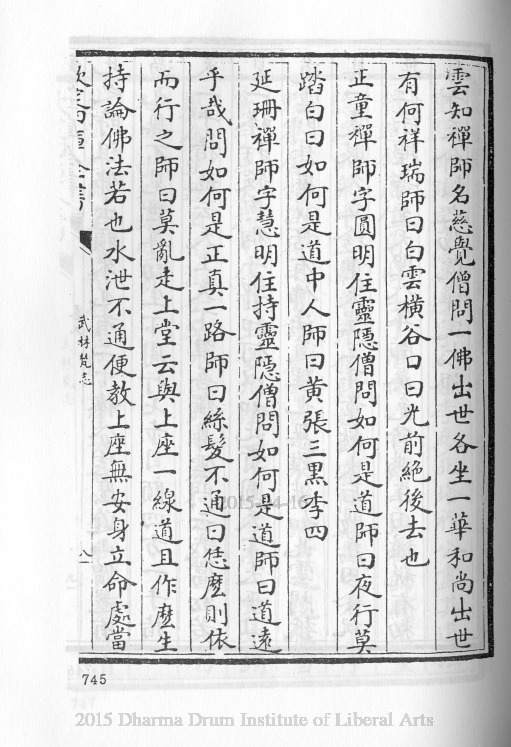 雲知禪師名慈覺僧問一佛出世各坐一華和尚出世
有何祥瑞師曰白雲橫谷口曰光前絕後去也
正童禪師字圓明住靈隱僧問如何是道師曰夜行莫
踏白曰如何是道中人師曰黄張三黒李四
延珊禪師字慧明住持靈隱僧問如何是道師曰道遠
乎哉問如何是正真一路師曰絲髮不通曰恁麽則依
而行之師曰莫亂走上堂云與上座一線道且作麽生
持論佛法若也水泄不通便教上座無安身立命處當
武林梵志
八一
745
2015-04-16
2015 Dharma Drum Institute of Liberal Arts